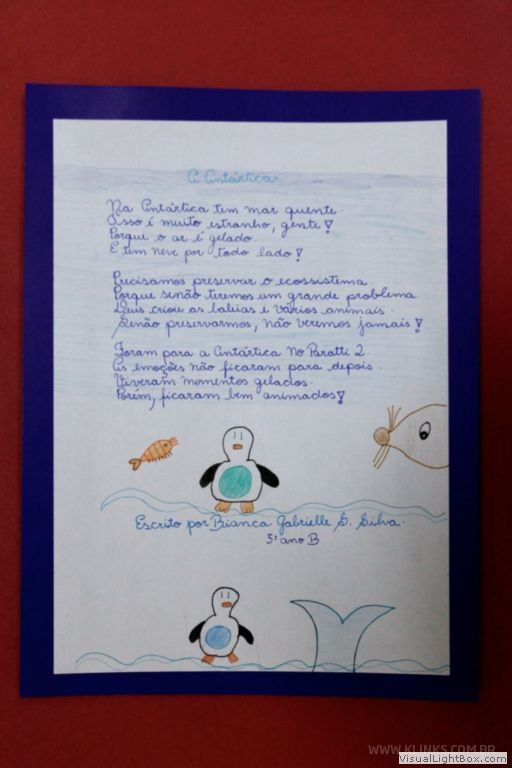 A Antártica
Na Antártica tem mar quente.
Isso é muito estranho, gente!
Porque o ar é gelado.
E tem neve por todo lado!
Precisamos preservar o ecossistema
Porque senão teremos um grande problema
Deus criou as baleias e vários animais.
Senão preservarmos, não veremos jamais!
Foram para a Antártica no Paratti 2.
As emoções não ficaram para depois.
Viveram momentos gelados.
Porém, ficaram bem animados!
Escrito por Bianca Gabrielle S. Silva.
5º ano B
WWW.KLINKS.COM.BR
VisualLightBox.com